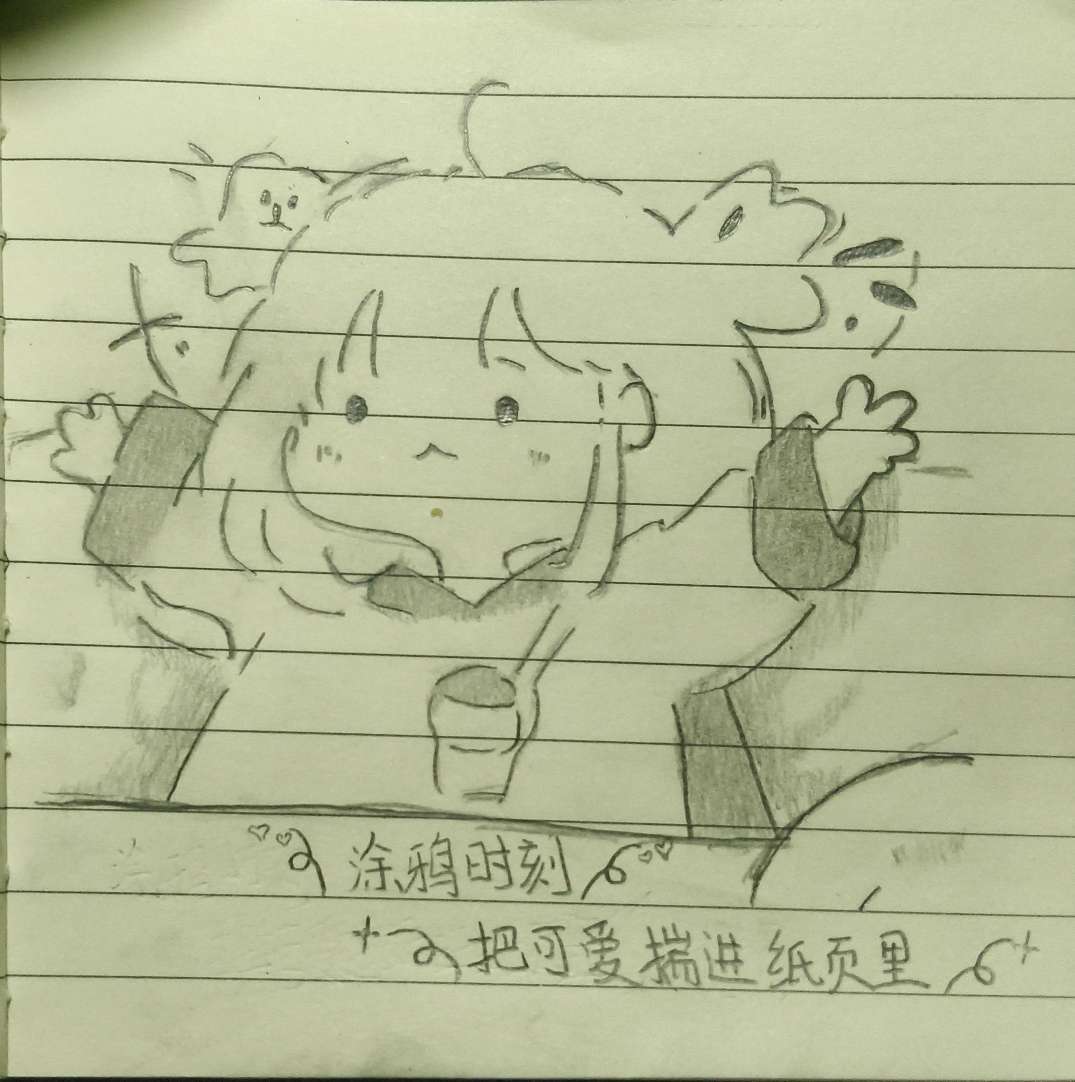 涂鸦时刻
把可爱揣进纸页里